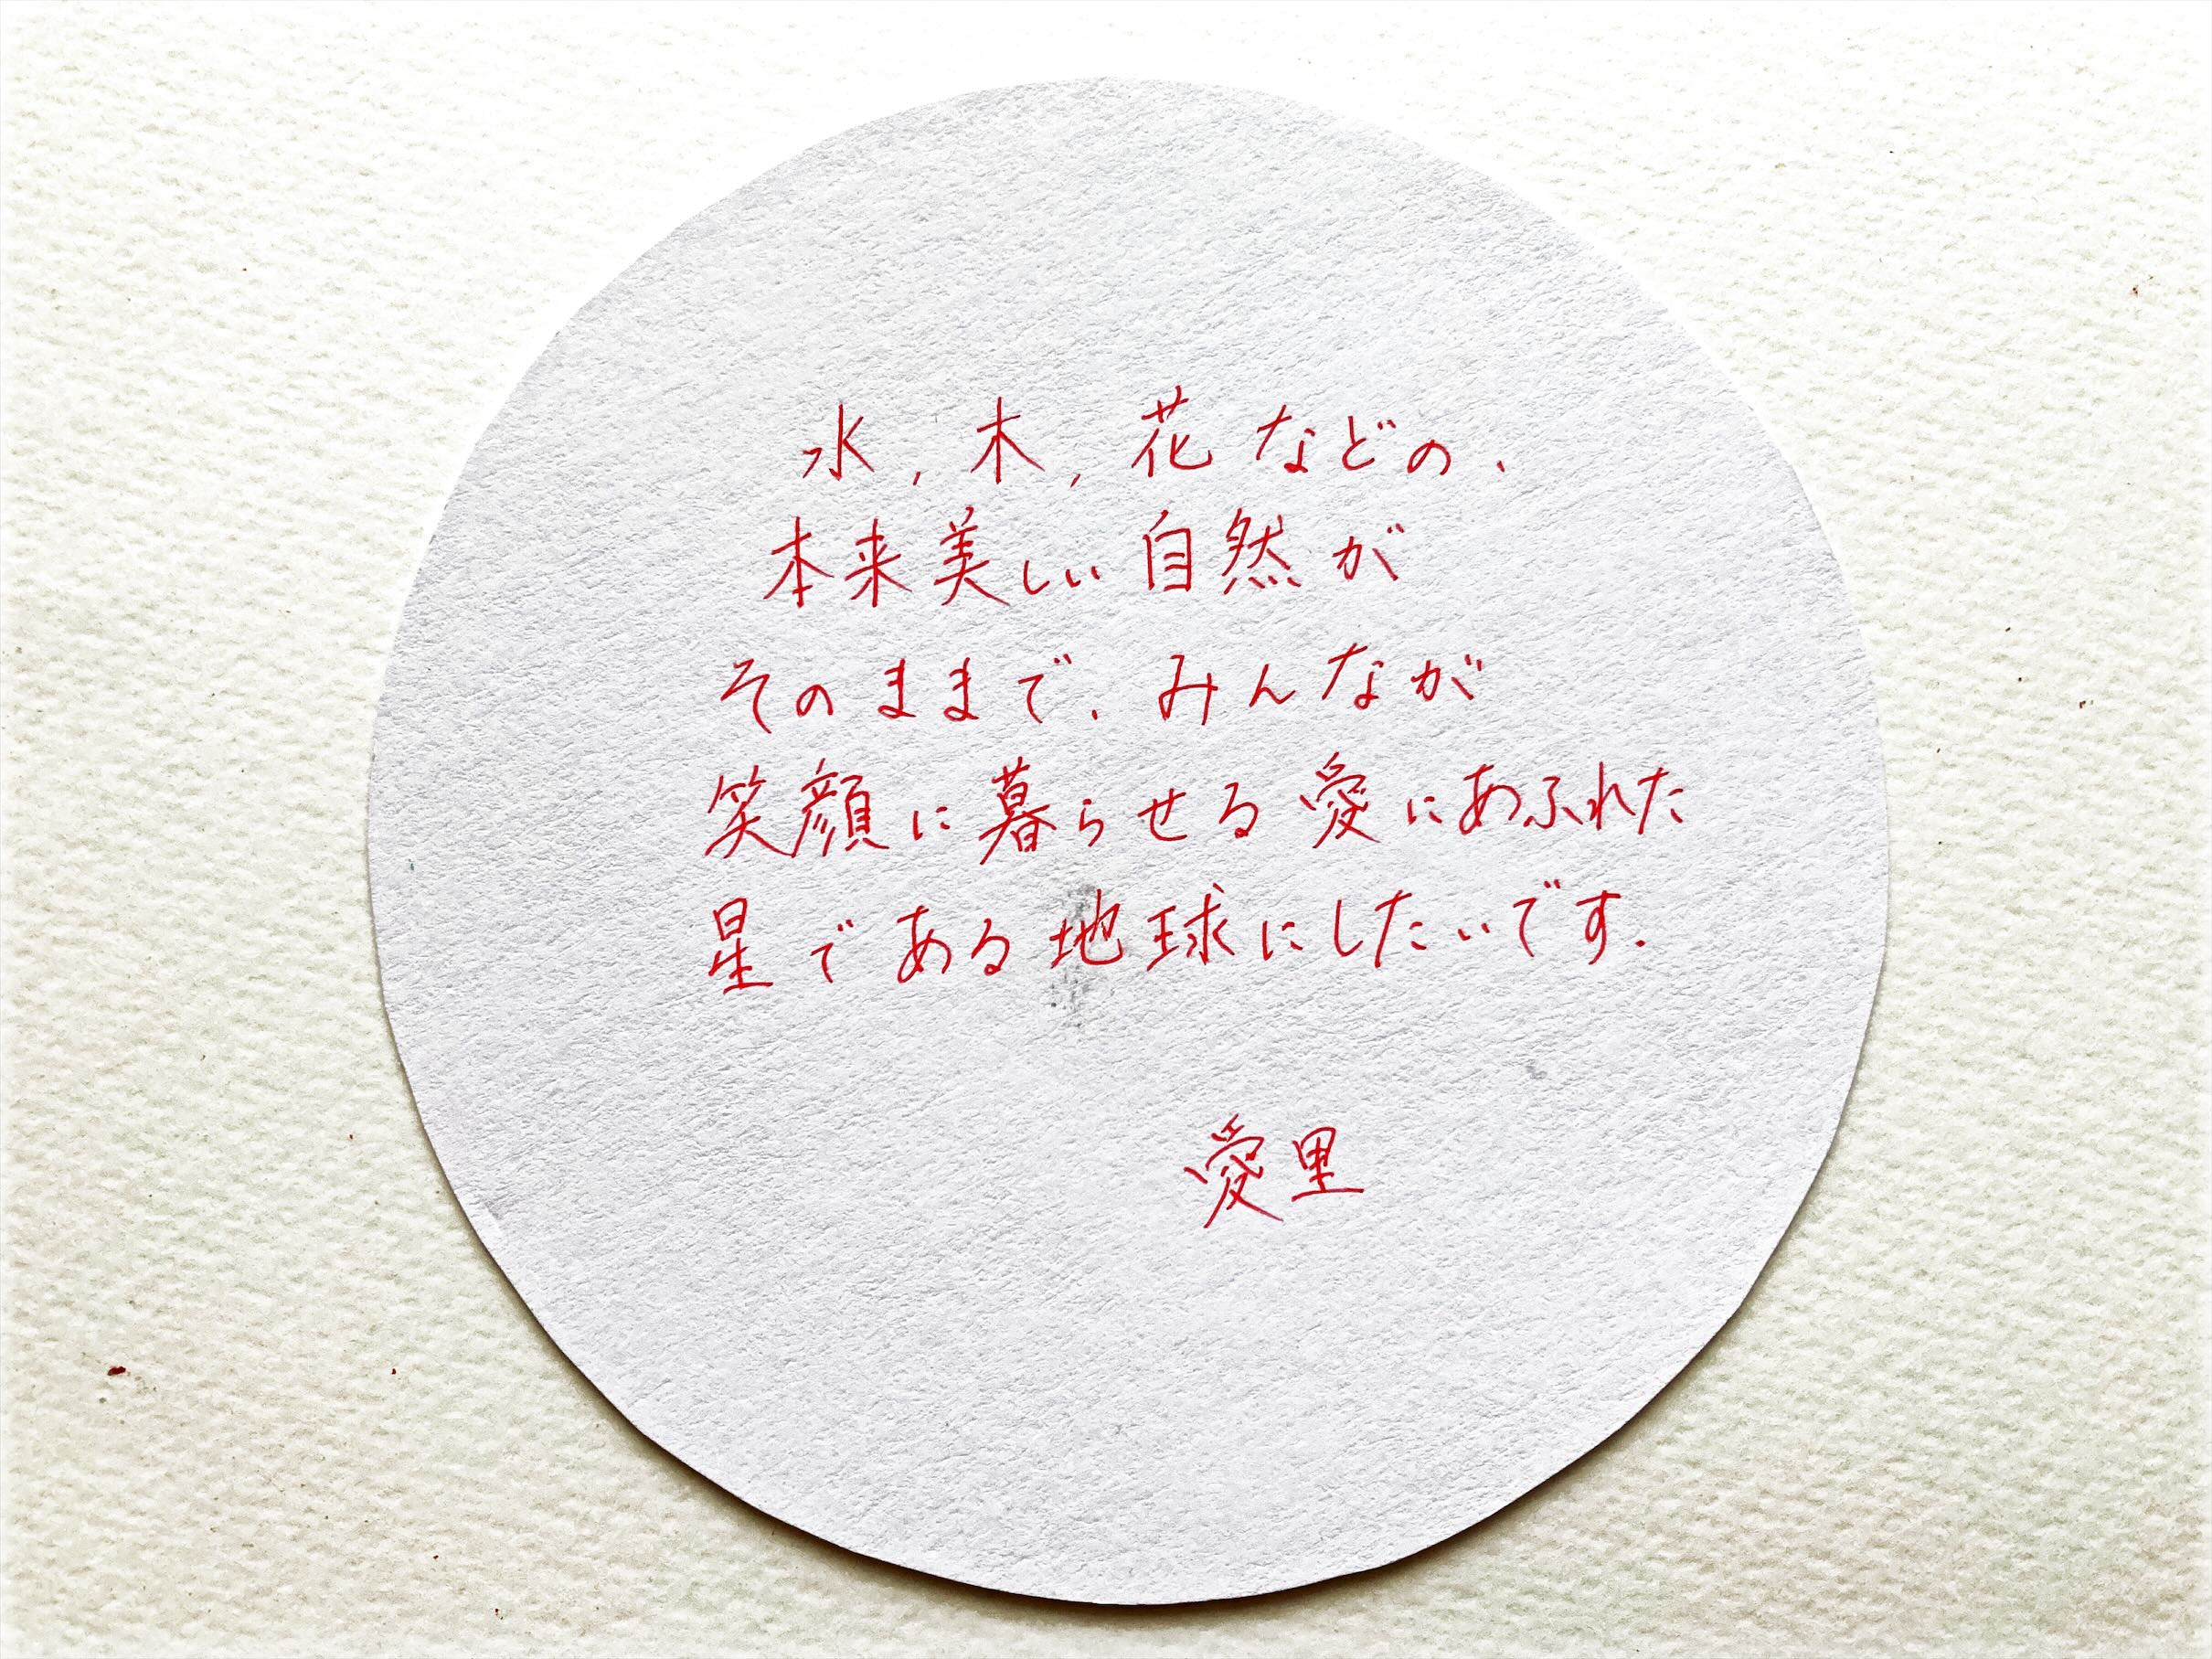 水,木,花などの、
本来美しい自然が
そのままで、みんなが
笑顔に暮らせる愛にあふれた
星である地球にしたいです.
愛里